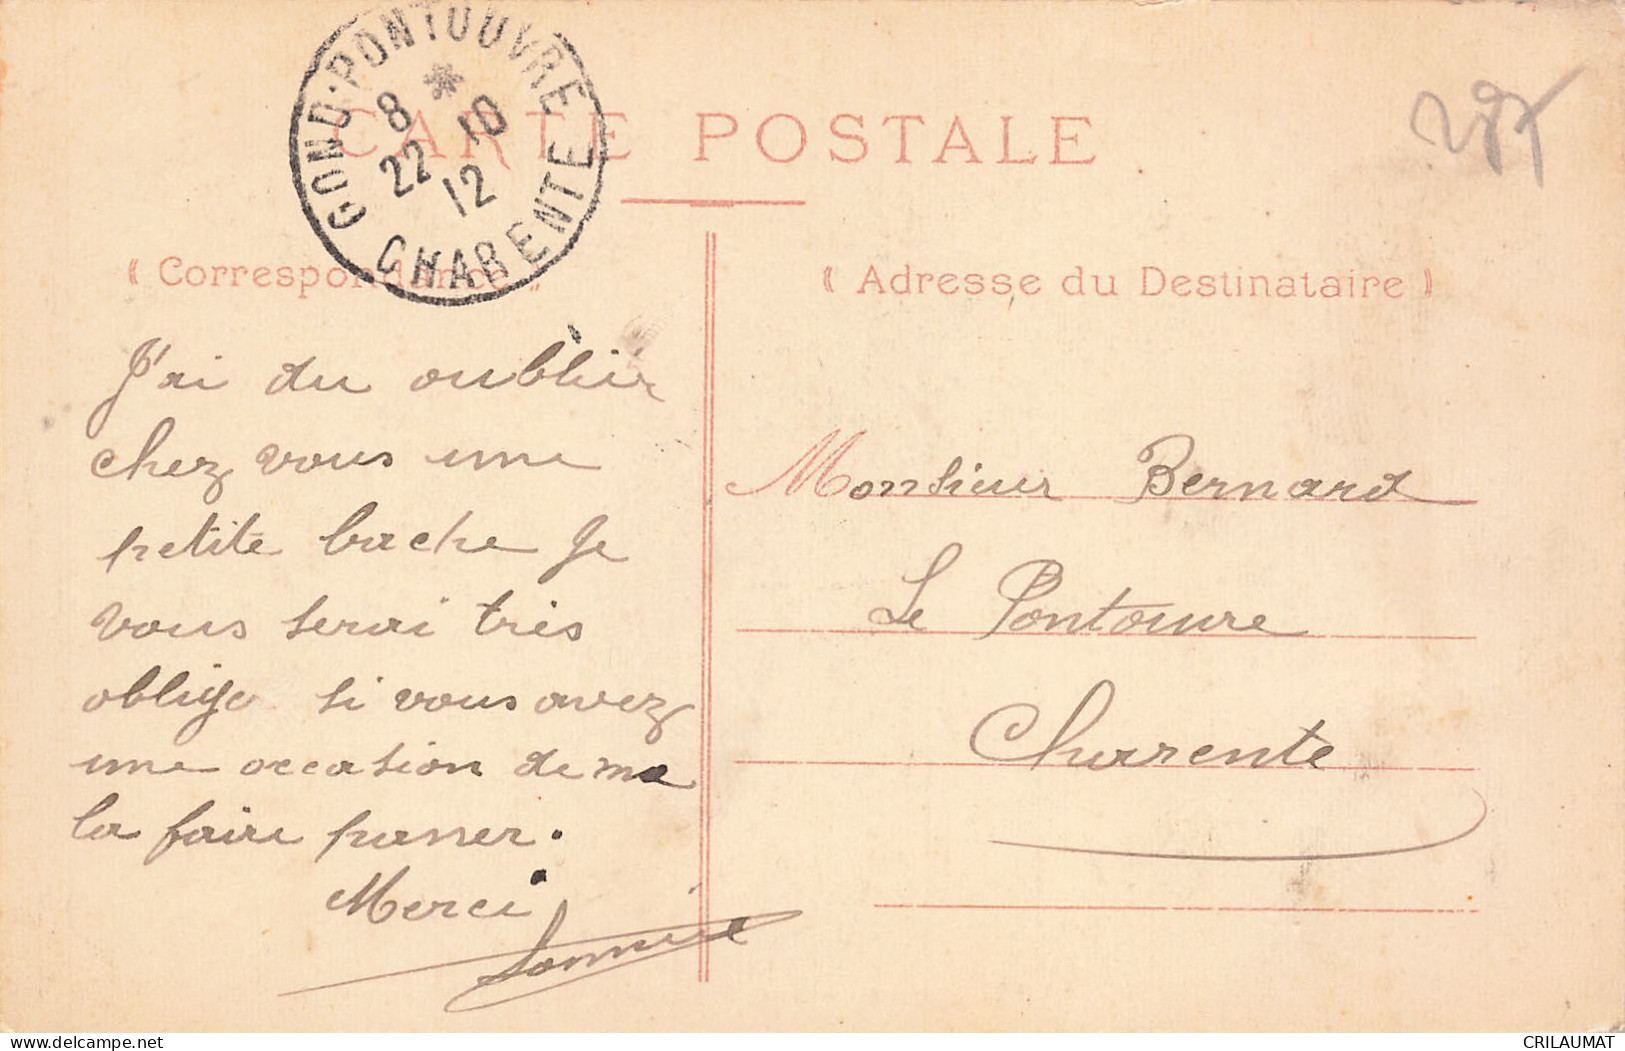 GOND-PONTOUVRE
8 * 10
22
12
CHARENTE
CARTE POSTALE
« Correspondance »
« Adresse du Destinataire »
J'ai du oublier
chez vous une
petite bache je
vous serai très
oblige si vous avez
une occasion de me
la faire passer.
Merci
Monsieur Bernard
Le Pontouvre
Charente
delcampe.net
CRILAUMAT